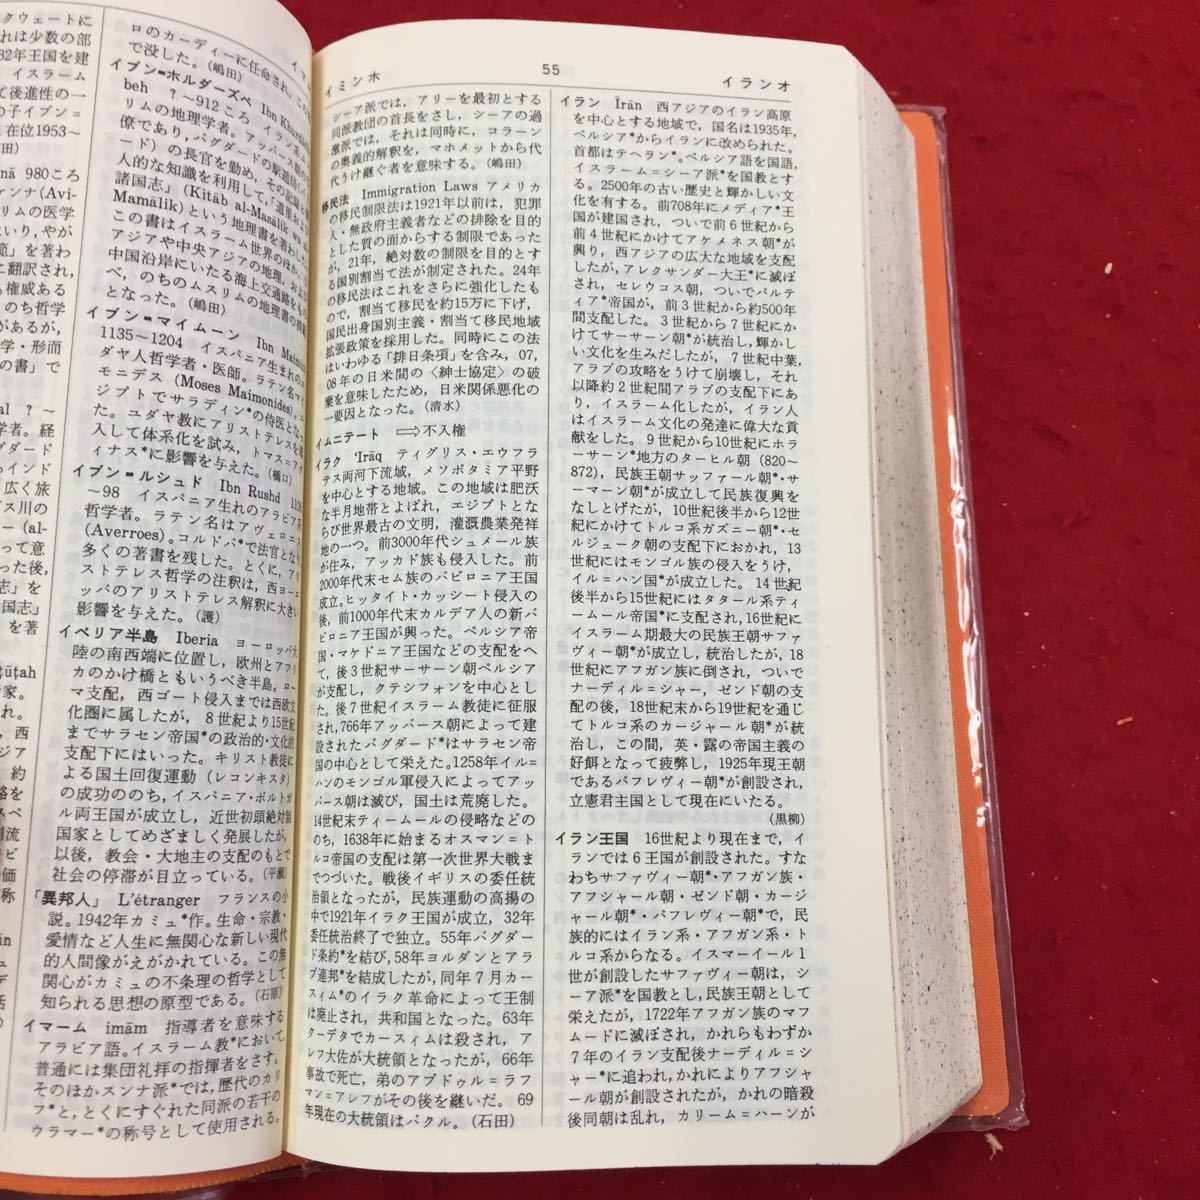 クウェートに
れは少数の部
62年王国を建
イスラーム
て後進性の一
の子イブン=
在位1953〜
田)
nā 980ころ
ァンナ(Avi-
リムの医学
といい,やが
範」を著わ
に翻訳され,
も権威ある
のち哲学
があるが,
学・形而
の書」で
al ?〜
学者。経
グダード
らインド
広く旅
ズス川の
ー(al-
って意
った後,
志」を
国志」
を著
ロのカーディーに任命され,この
で没した。(嶋田)
イブン=ホルダーズベ Ibn Khurdā
beh ?〜912ころ イラン系ム
リムの地理学者。アッバース朝の
僚であり,バグダードの駅逓局(
ード)の長官を勤め,その記録と
人的な知識を利用して,「道里およ
諸国志」(Kitāb al-Masālik
Mamālik)という地理書を著わした
この書はイスラーム世界のほか,
アジアや中央アジアの地理,およ
中国沿岸にいたる海上交通路をも
べ,のちのムスリムの地理書の模
となった。(嶋田)
イブン=マイムーン Ibn Maimūn
1135〜1204 イスパニア生まれのユ
ダヤ人哲学者・医師。ラテン名マイ
モニデス(Moses Maimonides)。エ
ジプトでサラディン*の侍医とな
た。ユダヤ教にアリストテレスを導
入して体系化を試み,トマス=アク
ィナス*に影響を与えた。(橋口)
イブン=ルシュド Ibn Rushd 1126
〜98 イスパニア生れのアラビア系
哲学者。ラテン名はアヴェロエス
(Averroes)。コルドバ*で法官となり
多くの著書を残した。とくに,アリ
ストテレス哲学の注釈は,西ヨーロ
ッパのアリストテレス解釈に大きい
影響を与えた。(護)
イベリア半島 Iberia ヨーロッパ大
陸の南西端に位置し,欧州とアフリ
カのかけ橋ともいうべき半島。ロー
マ支配,西ゴート侵入までは西欧文
化圏に属したが,8世紀より15世紀
までサラセン帝国*の政治的・文化的
支配下にはいった。キリスト教徒に
よる国土回復運動(レコンキスタ)
の成功ののち,イスパニア・ポルトガ
ル両王国が成立し,近世初頭絶対制
国家としてめざましく発展したが,
以後,教会・大地主の支配のもとで
社会の停滞が目立っている。(平瀬)
「異邦人」 L'étranger フランスの小
説。1942年カミュ*作。生命・宗教・
愛情など人生に無関心な新しい現代
的人間像がえがかれている。この無
関心がカミュの不条理の哲学として
知られる思想の原型である。(石原)
イマーム imām 指導者を意味する
アラビア語。イスラーム教*において,
普通には集団礼拝の指揮者をさす。
そのほかスンナ派*では,歴代のカリ
フ*と,とくにすぐれた同派の若干の
ウラマー*の称号として使用される。
イミンホ 55 イランオ
シーア派では,アリーを最初とする
同派教団の首長をさし,シーアの過
激派では,それは同時に,コラーン
の奥義的解釈を,マホメットから代
代うけ継ぐ者を意味する。(嶋田)
移民法 Immigration Laws アメリカ
の移民制限法は1921年以前は,犯罪
人・無政府主義者などの排除を目的
とした質の面からする制限であった
が,21年,絶対数の制限を目的とす
る国別割当て法が制定された。24年
の移民法はこれをさらに強化したも
ので,割当て移民を約15万に下げ,
国民出身国別主義・割当て移民地域
拡張政策を採用した。同時にこの法
はいわゆる「排日条項」を含み,07,
08年の日米間の〈紳士協定〉の破
棄を意味したため,日米関係悪化の
一要因となった。(清水)
イムニテート ⇨不入権
イラク 'Irāq ティグリス・エウフラ
テス両河下流域,メソポタミア平野
を中心とする地域。この地域は肥沃
な半月地帯とよばれ,エジプトとな
らび世界最古の文明,灌漑農業発祥
地の一つ。前3000年代シュメール族
が住み,アッカド族も侵入した。前
2000年代末セム族のバビロニア王国
成立。ヒッタイト・カッシート侵入の
後,前1000年代末カルデア人の新バ
ビロニア王国が興った。ペルシア帝
国・マケドニア王国などの支配をへ
て,後3世紀サーサーン朝ペルシア
が支配し,クテシフォンを中心とし
た。後7世紀イスラーム教徒に征服
され,766年アッバース朝によって建
設されたバグダード*はサラセン帝
国の中心として栄えた。1258年イル=
ハンのモンゴル軍侵入によってアッ
バース朝は滅び,国土は荒廃した。
14世紀末ティームールの侵略などの
のち,1638年に始まるオスマン=ト
ルコ帝国の支配は第一次世界大戦ま
でつづいた。戦後イギリスの委任統
治領となったが,民族運動の高揚の
中で1921年イラク王国が成立,32年
委任統治終了で独立。55年バグダー
ド条約*を結び,58年ヨルダンとアラ
ブ連邦*を結成したが,同年7月カー
スィム*のイラク革命によって王制
は廃止され,共和国となった。63年
クーデタでカースィムは殺され,ア
レフ大佐が大統領となったが,66年
事故で死亡,弟のアブドゥル=ラフ
マン=アレフがその後を継いだ。69
年現在の大統領はバクル。(石田)
イラン Īrān 西アジアのイラン高原
を中心とする地域で,国名は1935年,
ペルシア*からイランに改められた。
首都はテヘラン*。ペルシア語を国語,
イスラーム=シーア派*を国教とす
る。2500年の古い歴史と輝かしい文
化を有する。前708年にメディア*王
国が建国され,ついで前6世紀から
前4世紀にかけてアケメネス朝*が
興り,西アジアの広大な地域を支配
したが,アレクサンダー大王*に滅ぼ
され,セレウコス朝,ついでパルテ
ィア*帝国が,前3世紀から約500年
間支配した。3世紀から7世紀にか
けてサーサーン朝*が統治し,輝かし
い文化を生みだしたが,7世紀中葉,
アラブの攻略をうけて崩壊し,それ
以降約2世紀間アラブの支配下にあ
り,イスラーム化したが,イラン人
はイスラーム文化の発達に偉大な貢
献をした。9世紀から10世紀にホラ
ーサーン*地方のターヒル朝(820〜
872),民族王朝サッファール朝*・サ
ーマーン朝*が成立して民族復興を
なしとげたが,10世紀後半から12世
紀にかけてトルコ系ガズニー朝*・セ
ルジューク朝の支配下におかれ,13
世紀にはモンゴル族の侵入をうけ,
イル=ハン国*が成立した。14世紀
後半から15世紀にはタタール系ティ
ームール帝国*に支配され,16世紀に
イスラーム期最大の民族王朝サファ
ヴィー朝*が成立し,統治したが,18
世紀にアフガン族に倒され,ついで
ナーディル=シャー,ゼンド朝の支
配の後,18世紀末から19世紀を通じ
てトルコ系のカージャール朝*が統
治し,この間,英・露の帝国主義の
好餌となって疲弊し,1925年現王朝
であるパフレヴィー朝*が創設され,
立憲君主国として現在にいたる。
(黒柳)
イラン王国 16世紀より現在まで,イ
ランでは6王国が創設された。すな
わちサファヴィー朝*・アフガン族・
アフシャール朝・ゼンド朝・カージ
ャール朝*・パフレヴィー朝*で,民
族的にはイラン系・アフガン系・ト
ルコ系からなる。イスマーイール1
世が創設したサファヴィー朝は,シ
ーア派*を国教とし,民族王朝として
栄えたが,1722年アフガン族のマフ
ムードに滅ぼされ,かれらもわずか
7年のイラン支配後ナーディル=シ
ャー*に追われ,かれによりアフシャ
ール朝が創設されたが,かれの暗殺
後同朝は乱れ,カリーム=ハーンが